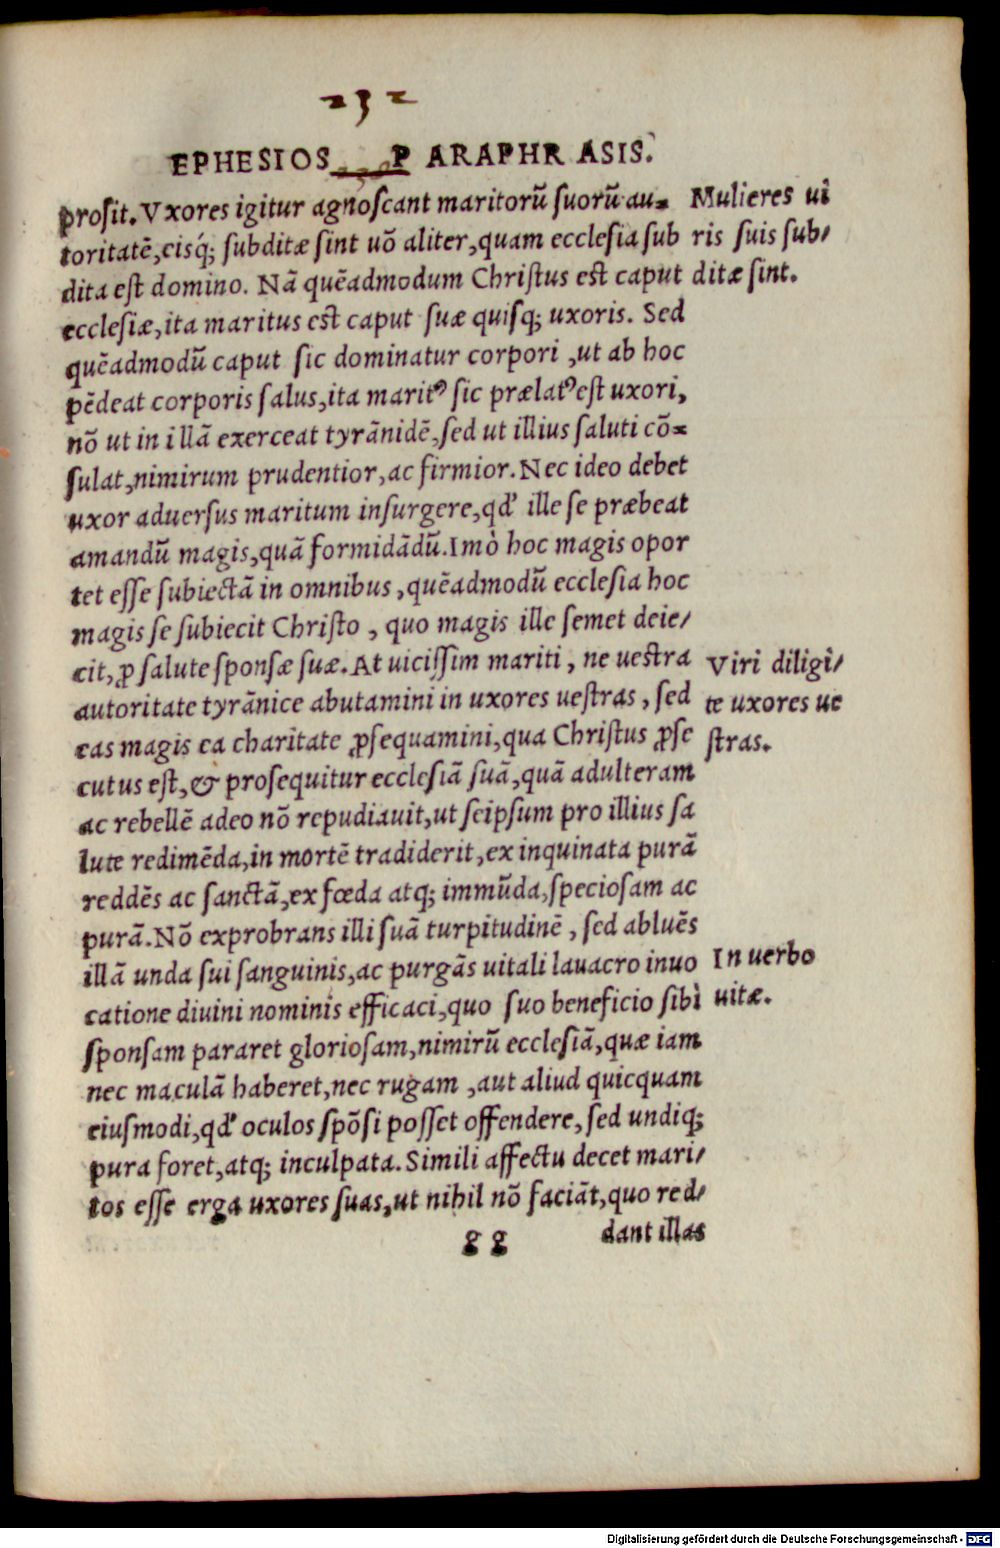 232
EPHESIOS PARAPHRASIS.
prosit. Vxores igitur agnoscant maritorũ suorũ au-
toritatẽ, eisq́; subditæ sint uõ aliter, quam ecclesia sub
dita est domino. Nã quẽadmodum Christus est caput
ecclesiæ, ita maritus est caput suæ quisq; uxoris. Sed
quẽadmodũ caput sic dominatur corpori, ut ab hoc
pẽdeat corporis salus, ita maritꝰ sic prælatꝰ est uxori,
nõ ut in illã exerceat tyrãnidẽ, sed ut illius saluti cõ-
sulat, nimirum prudentior, ac firmior. Nec ideo debet
uxor aduersus maritum insurgere, qd' ille se præbeat
amandũ magis, quã formidãdũ. Imò hoc magis opor
tet esse subiectã in omnibus, quẽadmodũ ecclesia hoc
magis se subiecit Christo, quo magis ille semet deie/
cit, ꝓ salute sponsæ suæ. At uicissim mariti, ne uestra
autoritate tyrãnice abutamini in uxores uestras, sed
eas magis ea charitate ꝓsequamini, qua Christus ꝓse
cutus est, & prosequitur ecclesiã suã, quã adulteram
ac rebellẽ adeo nõ repudiauit, ut seipsum pro illius sa
lute redimẽda, in mortẽ tradiderit, ex inquinata purã
reddẽs ac sanctã, ex fœda atq; immũda, speciosam ac
purã. Nõ exprobrans illi suã turpitudinẽ, sed abluẽs
illã unda sui sanguinis, ac purgãs uitali lauacro inuo
catione diuini nominis efficaci, quo suo beneficio sibi
sponsam pararet gloriosam, nimirũ ecclesiã, quæ iam
nec maculã haberet, nec rugam, aut aliud quicquam
eiusmodi, qd' oculos spõsi posset offendere, sed undiq;
pura foret, atq; inculpata. Simili affectu decet mari/
tos esse erga uxores suas, ut nihil nõ faciãt, quo red/
gg dant illas
Mulieres ui
ris suis sub/
ditæ sint.
Viri diligi/
te uxores ue
stras.
In uerbo
uitæ.
Digitalisierung gefördert durch die Deutsche Forschungsgemeinschaft - DFG